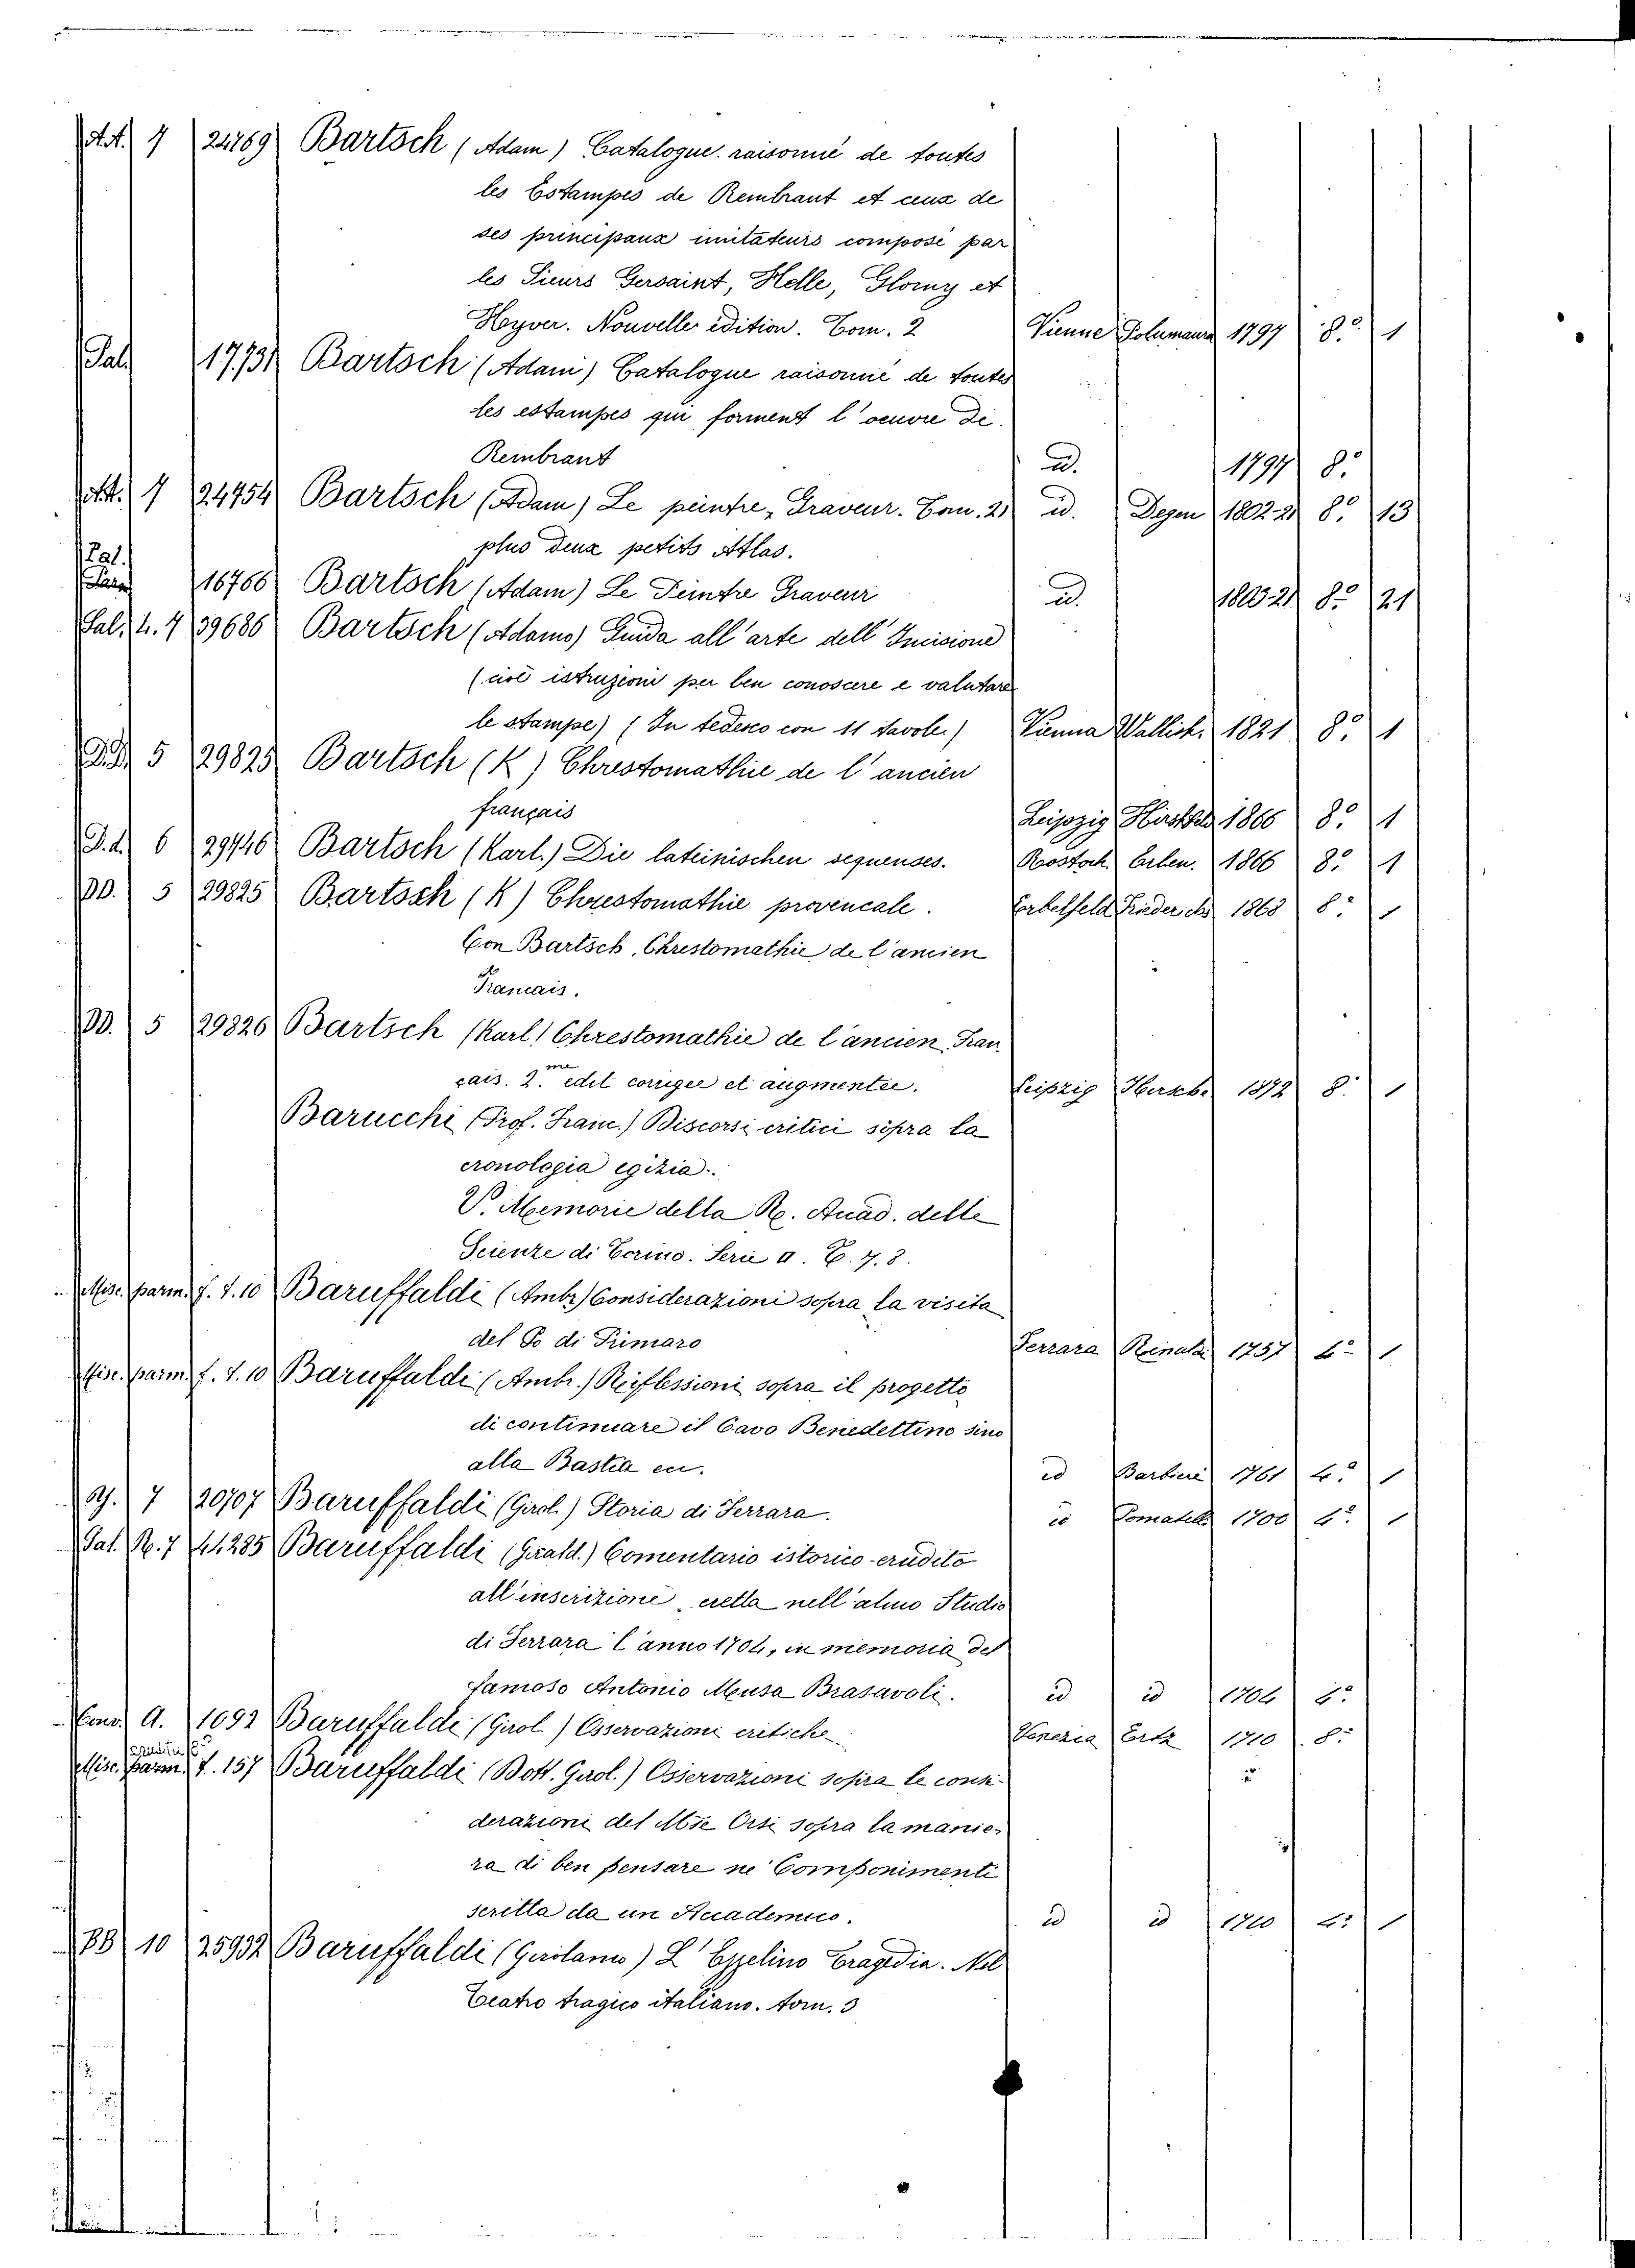 A.A. 7 24769 Bartsch (Adam) Catalogue raisonné de toutes
les Estampes de Rembrant et ceux de
ses principaux imitateurs composé par
les Sieurs Gersaint, Helle, Glomy et
Hyver. Nouvelle édition. Tom. 2 Vienne 1797 8.° 1
Pal. 1773 Bartsch (Adam) Catalogue raisonné de toutes
les estampes qui forment l'oeuvre di
Rembrant id. 1797 8.°
A.A. 7 24754 Bartsch (Adam) Le peintre, Graveur. Tom. 21 id. Degen 1802-21 8.° 13
plus deux petits Atlas.
Pal. 16766 Bartsch (Adam) Le Peintre Graveur id. 1803-21 8.° 21
Sal. L. 7 39686 Bartsch (Adamo) Guida all'arte dell'Incisione
(cioè istruzioni per ben conoscere e valutare
le stampe) (In tedesco con 11 tavole.) Vienna Wallish. 1821 8.° 1
D.D. 5 29825 Bartsch (K) Chrestomathie de l'ancien
français Leipzig 1866 8.° 1
D.d. 6 29746 Bartsch (Karl.) Die lateinischen sequenses. Rostock. Erben. 1866 8.° 1
DD. 5 29825 Bartsch (K) Chrestomathie provencale. Erbelfeld Friederchs 1868 8.° 1
Con Bartsch, Chrestomathie de l'ancien
Francais.
DD. 5 29826 Bartsch (Karl) Chrestomathie de l'ancien Fran
çais. 2.me edit corrigée et augmentée. Leipzig 1872 8.° 1
Barucchi (Prof. Franc.) Discorsi critici sopra la
cronologia egizia.
V. Memorie della R. Accad. delle
Scienze di Torino. Serie II. T. 7.8.
Misc. parm. f. T. 10 Baruffaldi (Ambr.) Considerazioni sopra la visita
del Po di Primaro Ferrara Rinaldi 1757 4° 1
Misc. parm. f. T. 10 Baruffaldi (Ambr.) Riflessioni sopra il progetto
di continuare il Cavo Benedettino sino
alla Bastia ec. id Barbieri 1761 4.° 1
G. 7 20707 Baruffaldi (Girol.) Storia di Ferrara. id Pomatelli 1700 4.° 1
Pal. R. 7 41285 Baruffaldi (Girald.) Comentario istorico-erudito
all'inscrizione, eretta nell'almo Studio
di Ferrara l'anno 1704, in memoria del
famoso Antonio Musa Brasavoli. id id 1704 4.°
A. 1092 Baruffalde (Girol.) Osservazioni critiche Venezia Ertz 1710 8.°
Misc. parm. f. 157 Baruffaldi (Dott. Girol.) Osservazioni sopra le consi-
derazioni del Mse Orsi sopra la manie-
ra di ben pensare ne Componimenti
scritta da un Accademico. id id 1710 4.° 1
BB 10 25932 Baruffaldi (Girolamo) L'Ezzelino Tragedia. Nel
Teatro tragico italiano. tom. 3